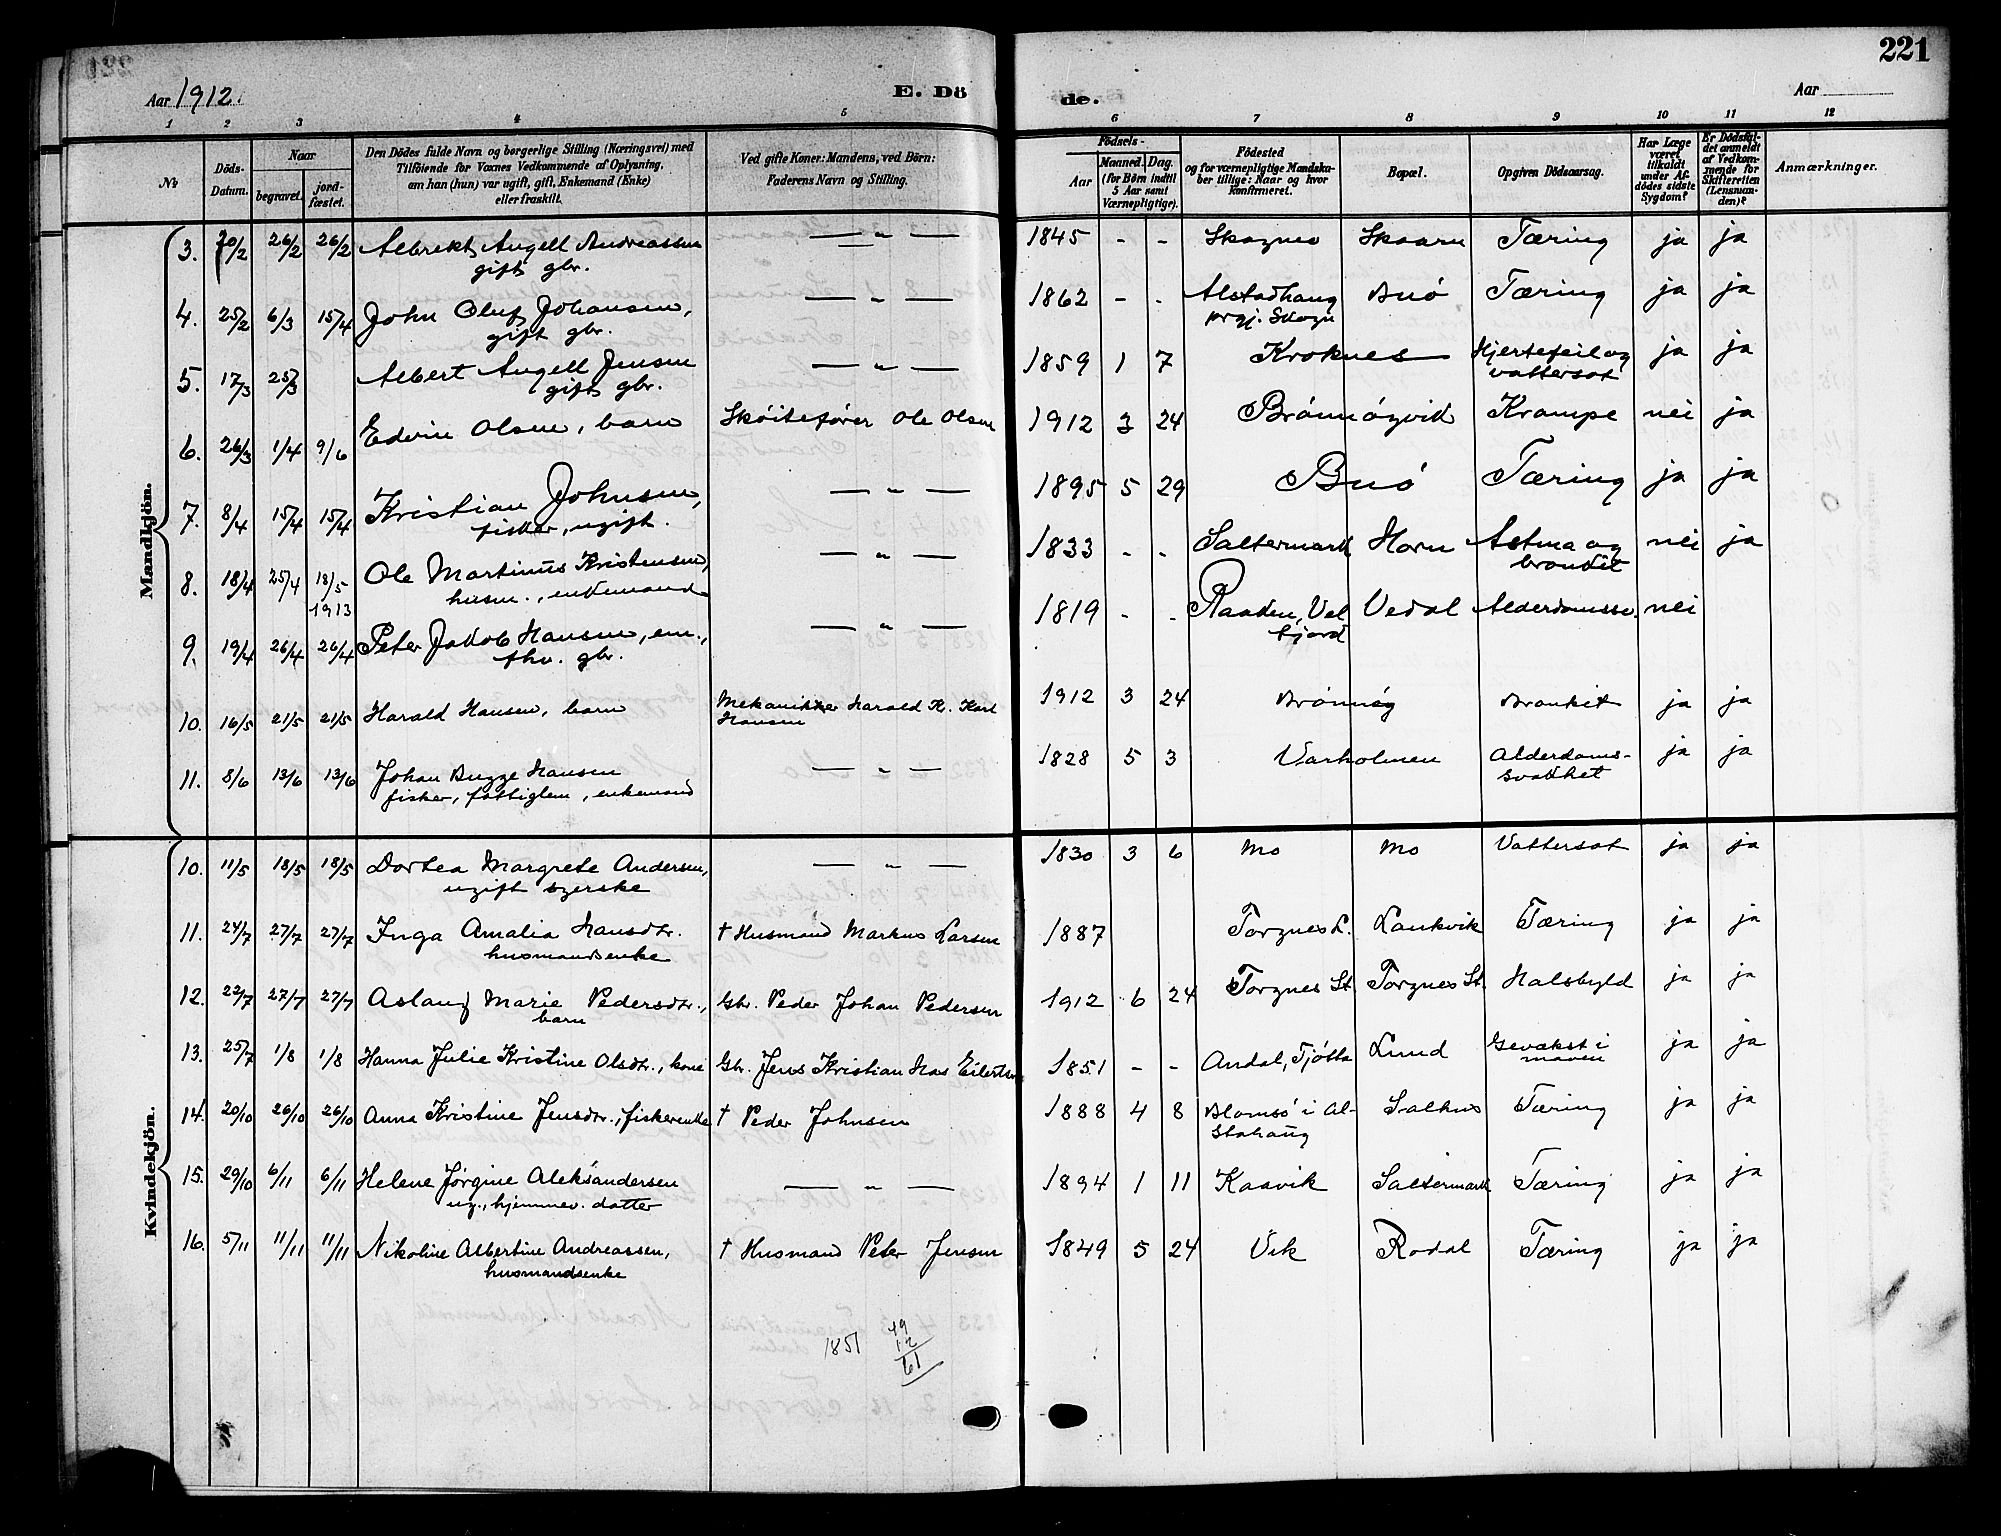 221
Aar 1912.
E. Dö
de.
Aar
1 2 3 4 5 6 7 8 9 10 11 12
№
Döds-
Datum.
Naar
begravet.
jord-
fæstet.
Den Dödes fulde Navn og borgerlige Stilling (Næringsvei) med
Tilföiende for Voxnes Vedkommende af Oplysning,
om han (hun) var ugift, gift, Enkemand (Enke)
eller fraskilt.
Ved gifte Koner: Mandens, ved Börn:
Faderens Navn og Stilling.
Födsels-
Aar
Maaned. Dag.
(for Börn indtil
5 Aar samt
Værnepligtige).
Födested
og for værnepligtige Mandska-
ber tillige: Naar og hvor
konfirmeret.
Bopæl.
Opgiven Dödsaarsag.
Har Læge
været
tilkaldt
under Af-
dödes sidste
Sygdom?
Er Dödsfal-
det anmeldt
af Vedkom-
mende for
Skifteretten
(Lensman-
den)?
Anmærkninger.
Mandkjön.
3. 20/2 26/2 26/2 Albrekt Angell Andreassen — " — 1845 - - Skogmo Skaarn Tæring ja ja
gift gbr.
4. 25/2 6/3 15/4 John Oluf Johansen, — " — 1862 - - Alstadhaug Buö Tæring ja ja
gift gbr. prgj. Skogn
5. 17/3 25/3 Albert Angell Jensen — " — 1859 1 7 Kroknes Hjertefeil og ja ja
gift gbr. vattersot
6. 26/3 1/4 9/6 Edvin Olsen, barn Sköitefører Ole Olsen 1912 3 24 Brönnöyvik Krampe nei ja
7. 8/4 15/4 15/4 Kristian Johnsen, — " — 1895 5 29 Buö Tæring ja ja
fisker, ugift.
8. 18/4 25/4 18/5 1913 Ole Martinus Kristensen, — " — 1833 - - Saltermark Horn Astma og nei ja
husm., enkemand bronkit
9. 19/4 26/4 26/4 Peter Jakob Hansen, em., — " — 1819 - - Raaden, Vel Vedal Alderdomssv. nei
fhv. gbr. fjord
10. 16/5 21/5 21/5 Harald Hansen, barn Mekanikker Harald K. Karl 1912 3 24 Brönnöy Bronkit ja ja
Hansen
11. 8/6 13/6 13/6 Johan Bugge Hansen — " — 1828 5 3 Varholmen Alderdoms- ja ja
fisker, fattiglem, enkemand svakhet
Kvindekjön.
10. 11/5 18/5 18/5 Dortea Margrete Andersen, — " — 1830 3 6 Mo Mo Vattersot ja ja
ugift syerske
11. 24/7 27/7 27/7 Inga Amalia Hansdtr. † Husmand Markus Larsen 1887 Torgnes L. Laukvik Tæring ja ja
husmandsenke
12. 22/7 27/7 27/7 Aslaug Marie Pedersdtr., Gbr. Peder Johan Pedersen 1912 6 24 Torgnes St. Torgnes St. Halsbyld ja ja
barn
13. 25/7 1/8 1/8 Hanna Julie Kristine Olsdtr., kone Gbr. Jens Kristian Hos Eilertsen 1851 - - Andal, Tjötta Lund Gevækst i ja ja
maven
14. 20/10 26/10 26/10 Anna Kristine Jensdtr., fiskerenke † Peder Johnsen 1888 4 8 Blomsö i Al- Salhus Tæring ja ja
stahaug
15. 29/10 6/11 6/11 Helene Jørgine Aleksandersen — " — 1894 1 11 Kaavik Saltermark Tæring ja ja
ug., hjemmev. datter
16. 5/11 11/11 11/11 Nikoline Albertine Andreassen, † Husmand Peter Jensen 1849 5 24 Vik Rodal Tæring ja ja
husmandsenke
1851
49
12
61